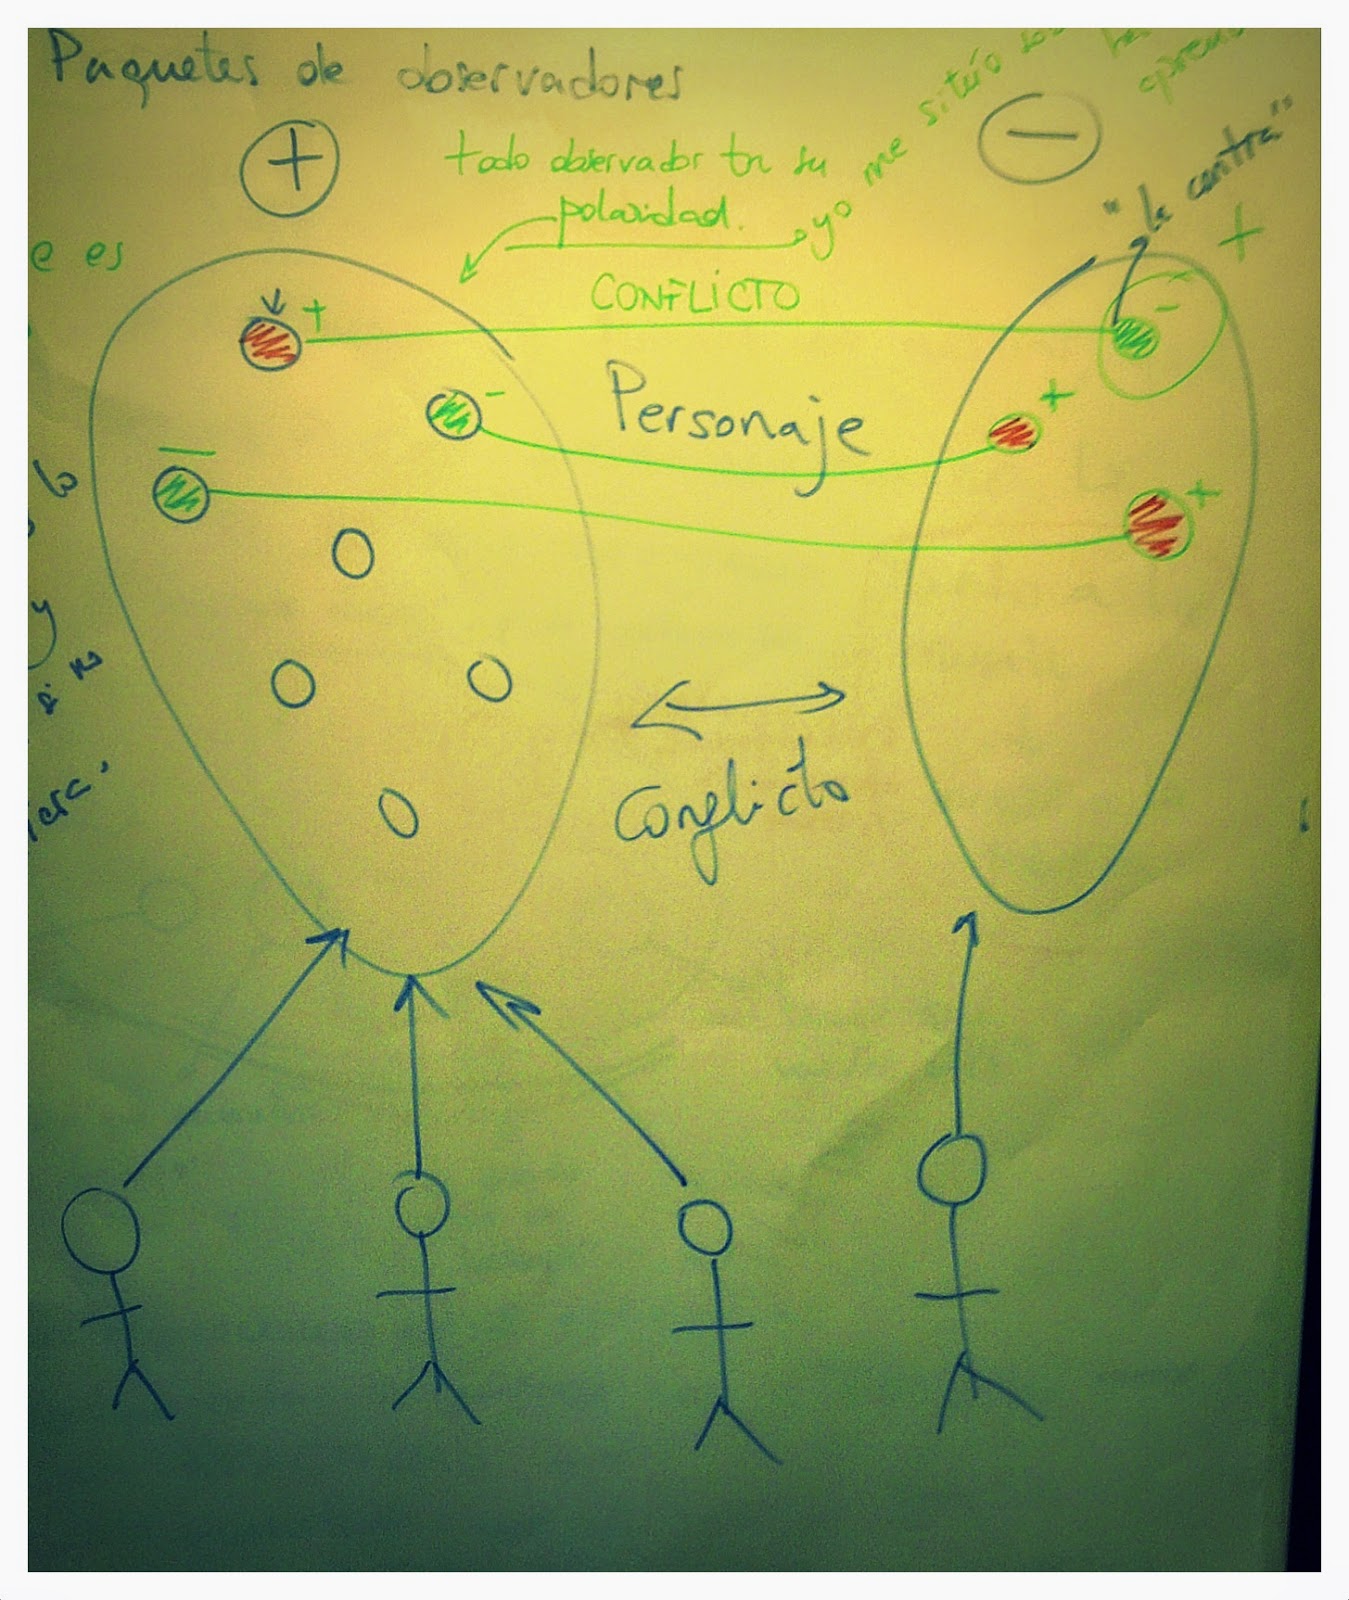 Paquetes de observadores
+
-
todo observador tn su
polaridad.
yo me sitúo
"la contra"
+
e es
CONFLICTO
+
-
-
+
Personaje
-
+
y
Conflicto